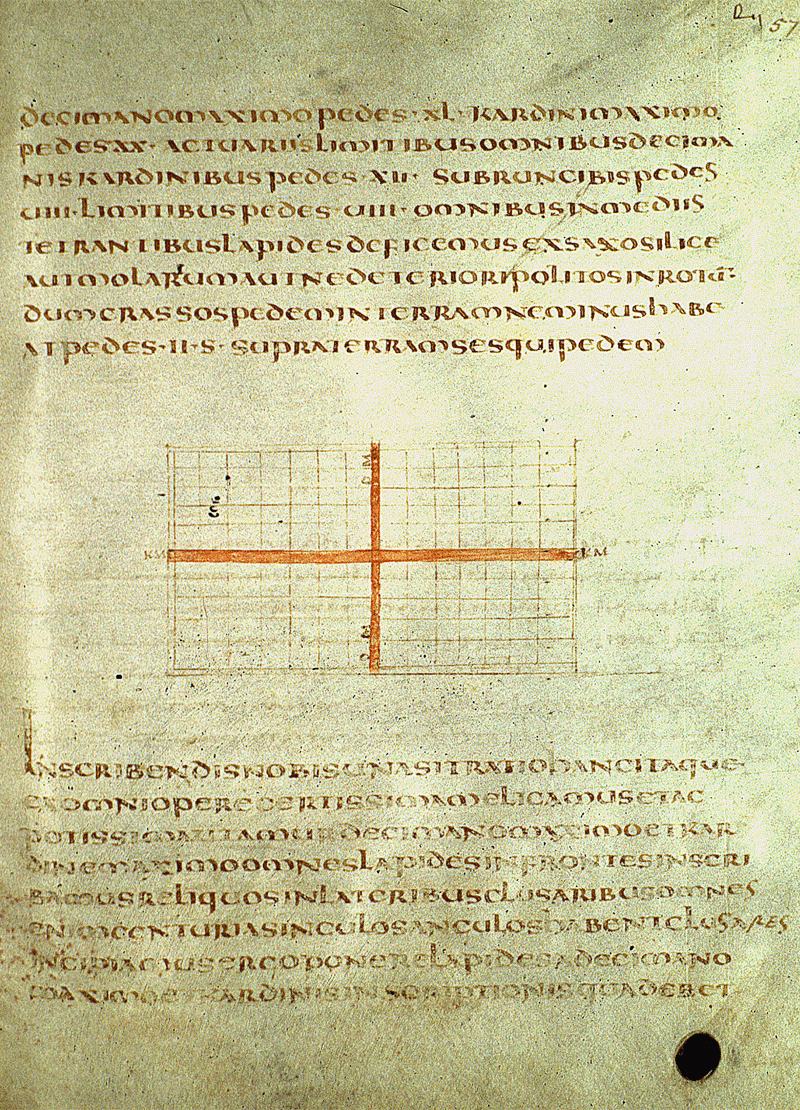 R 4 57
DECIMANOMAXIMOPEDES·XL·KARDINIMAXIMO
PEDESXX·ACTUARIISLIMITIBUSOMNIBUSDECIMA
NISKARDINIBUSPEDES·XII·SUBRUNCIBISPEDES
UIII·LIMITIBUSPEDES·UIII·OMNIBUSINMEDIIS
TETRANTIBUSLAPIDESDEFICEMUSEXSAXOSILICE
AUTMOLARUMAUTNEDETERIORIPOLITOSINROTU
DUMCRASSOSPEDEMINTERRAMNEMINUSHABE
ATPEDES·II·S·SUPRATERRAMSESQUIPEDEM
DM
KM KM
DM
INSCRIBENDISNOBISUNASITRATIODANCITAQUE
EXOMNIOPERECERTISSIMAMELICAMUSETAC
POTISSIMAUTAMURDECIMANOMAXIMOETKAR
DINEMAXIMOOMNESLAPIDESINFRONTESINSCRI
BAMUSRELIQUOSINLATERIBUSCLUSARIBUSOMNES
ENIMCENTURIASINCULOSANCULOSHABENTCLUSARES
INCIPIAMUSERCOPONERELAPIDESADECIMANO
MAXIMOETKARDINISINSCRIPTIONISQUADEBET